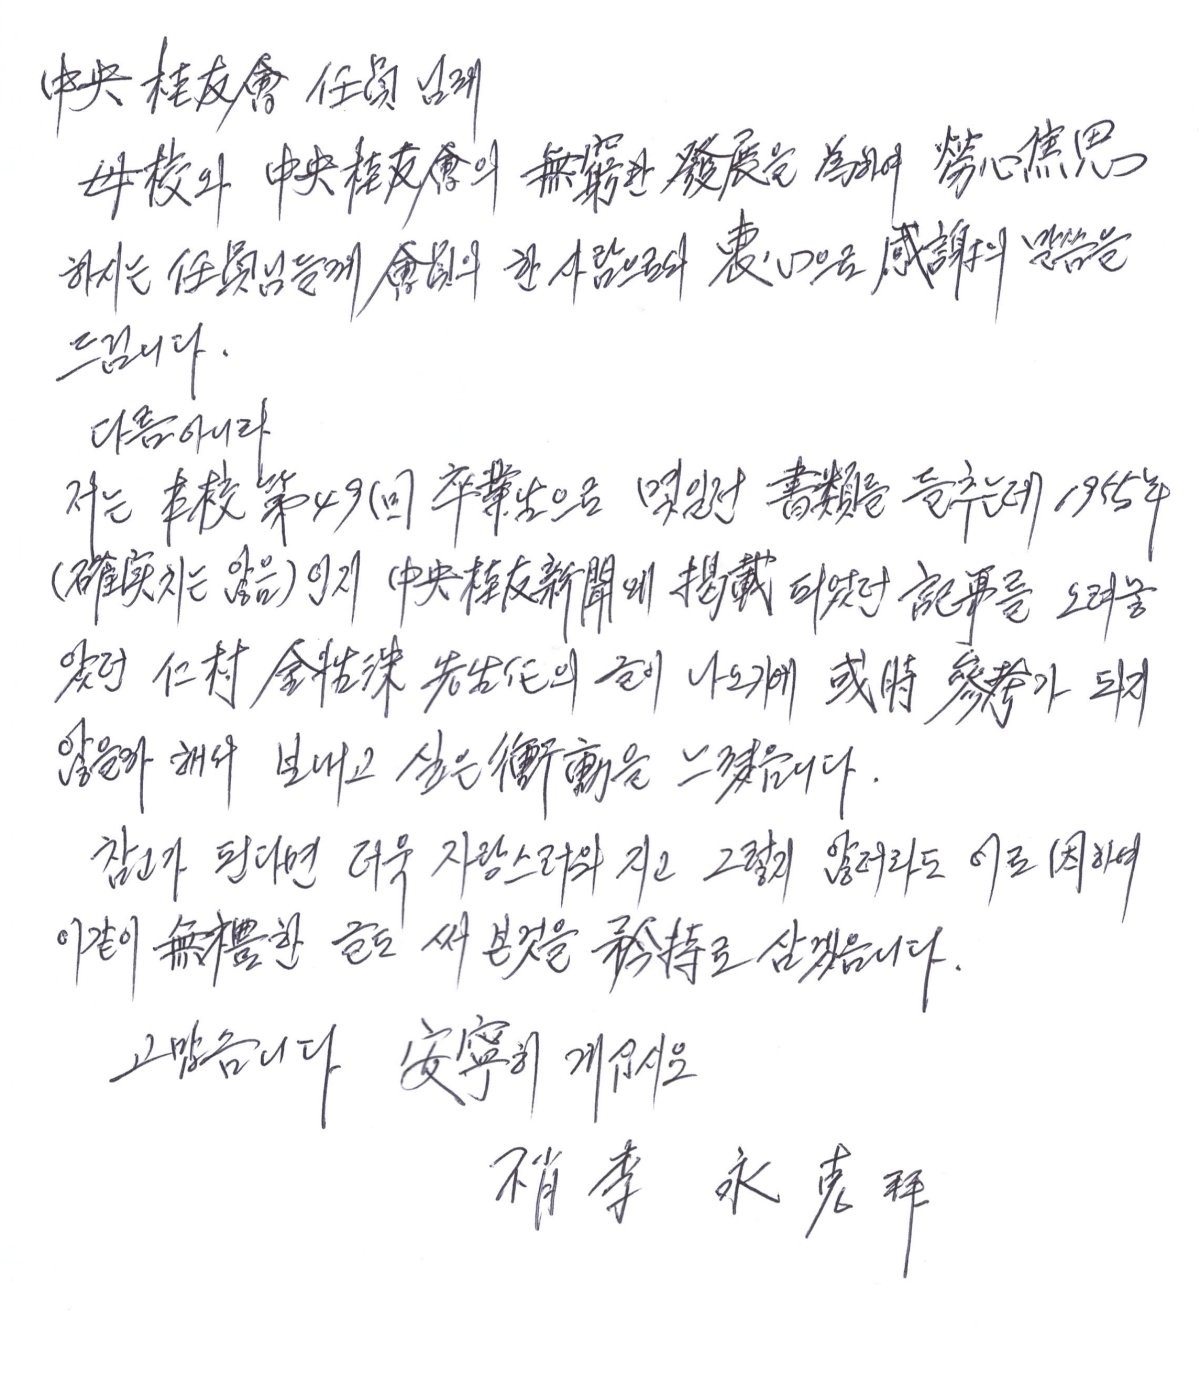 中央 桂友會 任員 님께
母校와 中央桂友會의 無窮한 發展을 為하여 勞心焦思
하시는 任員님들께 會員의 한 사람으로서 衷心으로 感謝의 말씀을
드립니다.
다름아니라
저는 本校 第49(回) 卒業生으로 몇일전 書類를 들추는데 1955년
(確实치는 않음)인지 中央桂友新聞에 揭載 되었던 記事를 오려놓
았던 仁村 金性洙 先生任의 글이 나오기에 或時 參考가 되지
않을까 해서 보내고 싶은 衝動을 느꼈읍니다.
참고가 된다면 더욱 자랑스러워 지고 그렇지 않더라도 이로 因하여
이같이 無禮한 글도 써 본것을 矜持로 삼겠읍니다.
고맙습니다 安寧히 계십시오
不肖 李 永 拜